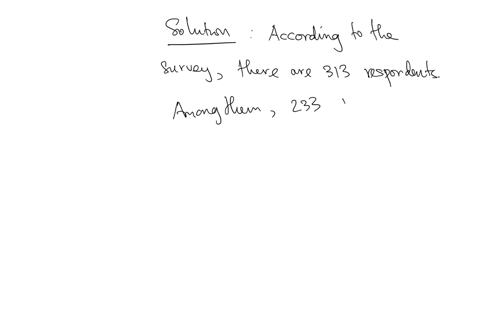 Solution : According to the
survey, there are 313 respondents.
Among them, 233